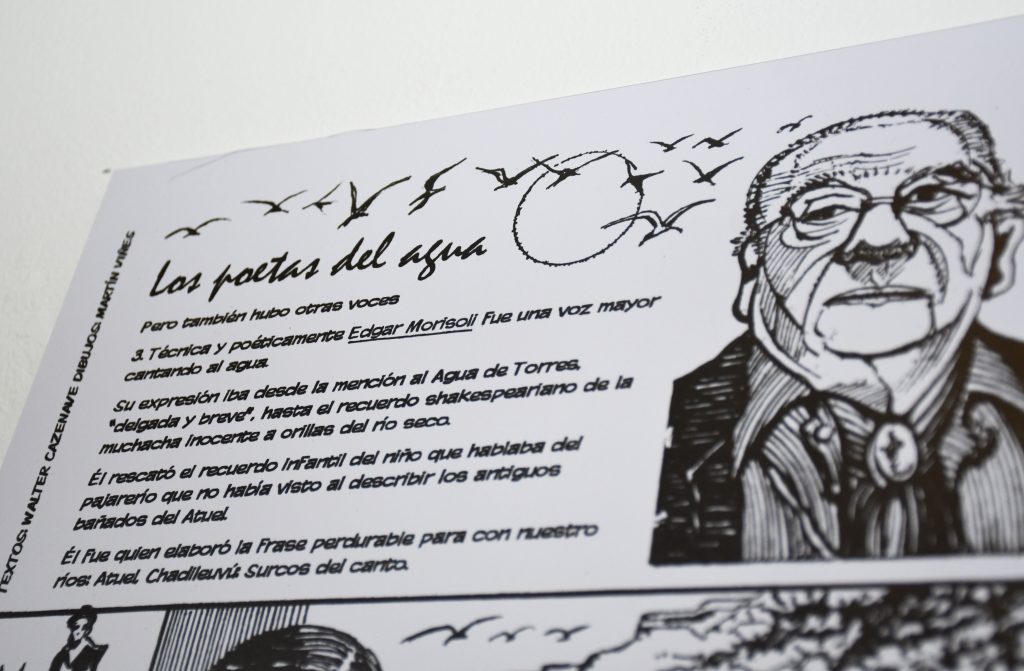 Los poetas del agua
Pero también hubo otras voces
3. Técnica y poéticamente Edgar Morisoli Fue una voz mayor
cantando al agua.
Su expresión iba desde la mención al Agua de Torres,
"delgada y breve", hasta el recuerdo shakespeariano de la
muchacha inocente a orillas del río seco.
Él rescató el recuerdo infantil del niño que hablaba del
pajarerío que no había visto al describir los antiguos
bañados del Atuel.
Él fue quien elaboró la frase perdurable para con nuestro
ríos: Atuel, Chadileuvú: Surcos del canto.
TEXTOS: WALTER CAZENAVE DIBUJOS: MARTÍN VIÑES